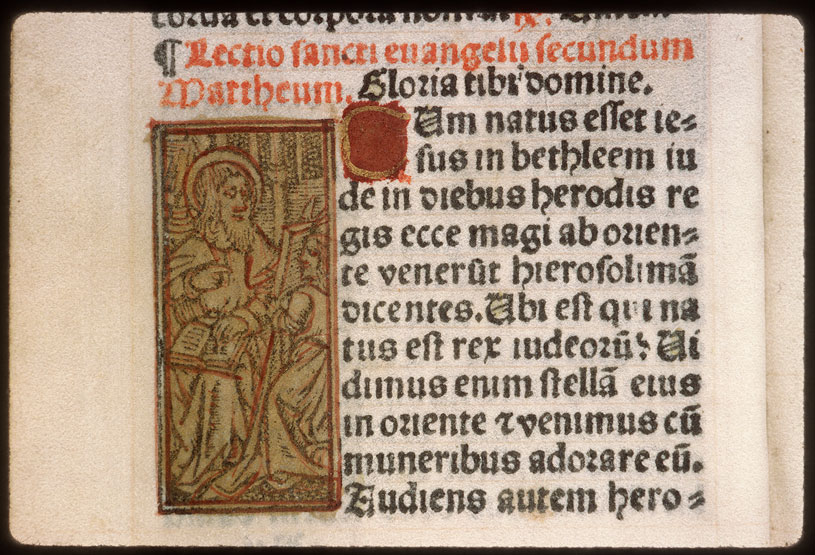 corda et corpora nostra. ℟. Amen.
¶ Lectio sancti euangelii secundum
Mattheum. Gloria tibi domine.
CUm natus esset ie⸗
sus in bethleem iu
de in diebus herodis re
gis ecce magi ab orien⸗
te venerūt hierosolimā
dicentes. Ubi est qui na
tus est rex iudeorū? Ui
dimus enim stellā eius
in oriente ⁊ venimus cū
muneribus adorare eū.
Audiens autem hero⸗